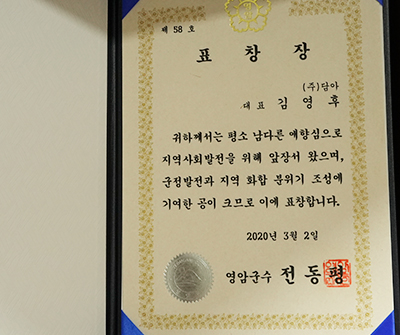 제 58 호
표 창 장
(주)담아
대표 김 영 후
귀하께서는 평소 남다른 애향심으로
지역사회발전을 위해 앞장서 왔으며,
군정발전과 지역 화합 분위기 조성에
기여한 공이 크므로 이에 표창합니다.
2020년 3월 2일
영암군수 전 동 평